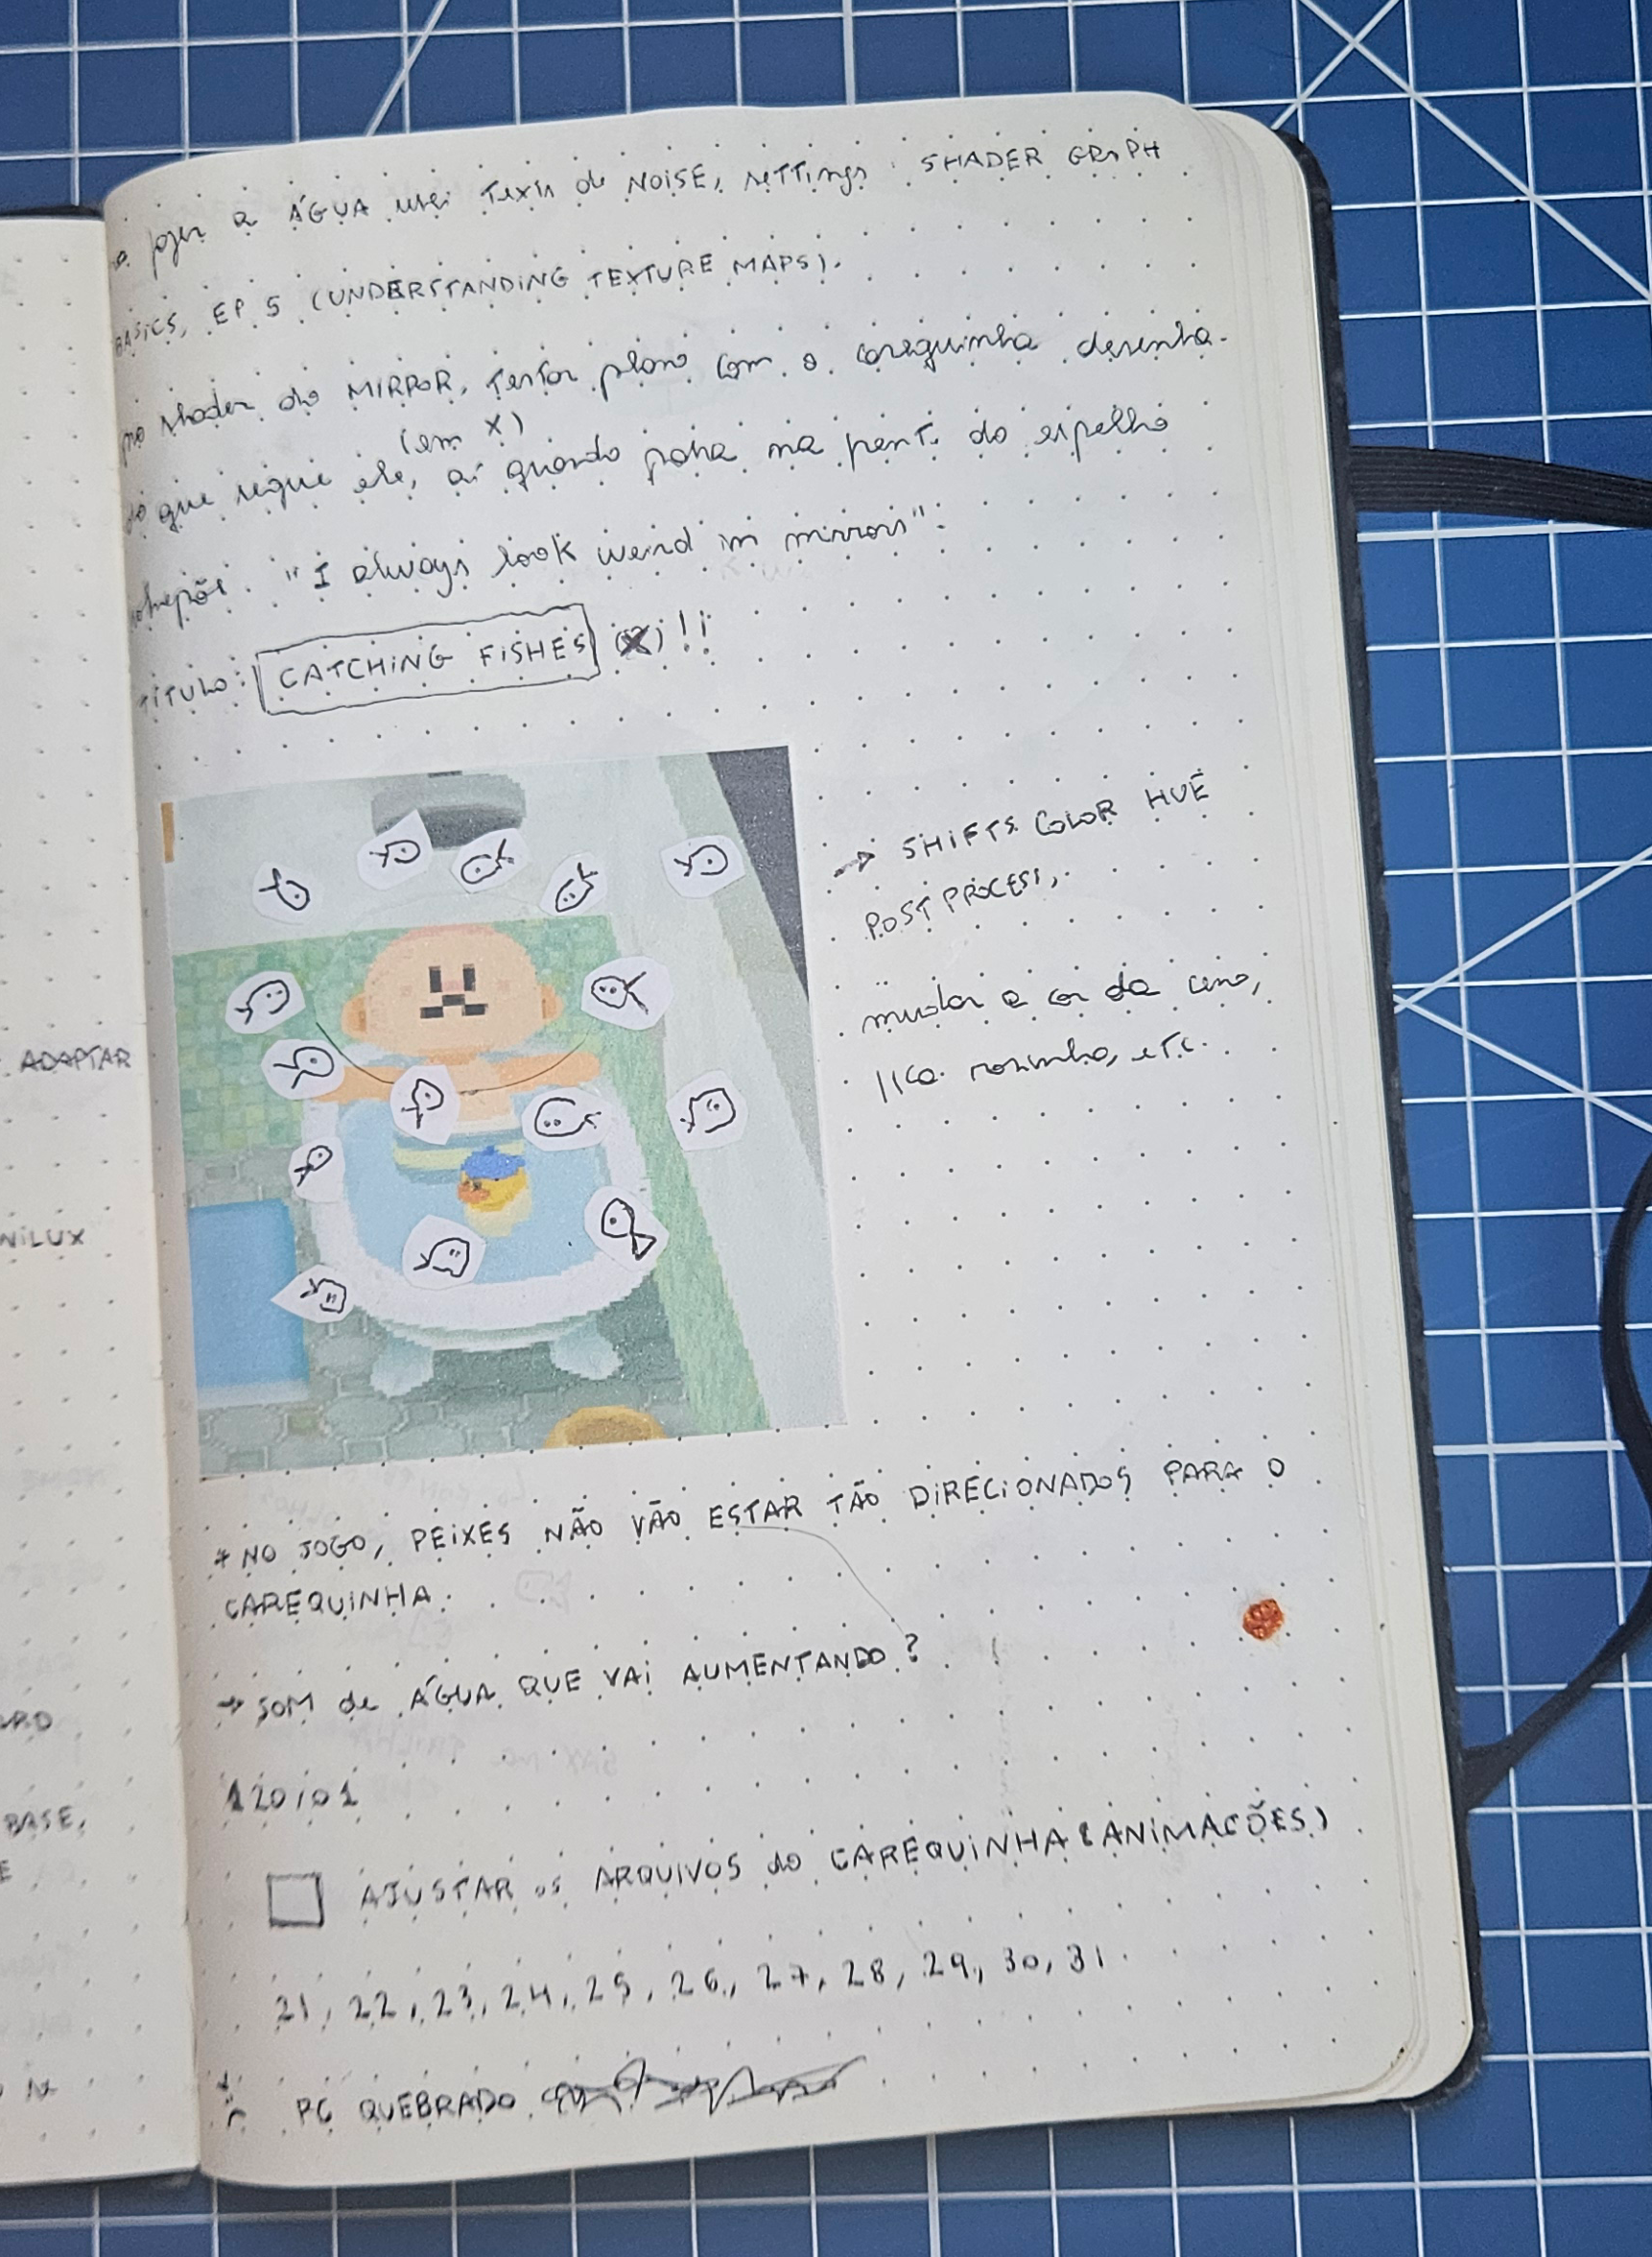 a ÁGUA usei Textura de NOISE, settings: SHADER GRAPH
BASICS, EP 5 (UNDERSTANDING TEXTURE MAPS).
no shader do MIRROR, testar plano com o carequinha desenha-
(em X)
do que segue ele, aí quando para na do espelho
"I always look weird in mirrors".
TÍTULO: CATCHING FISHES !!
→ SHIFTS COLOR HUE
POST PROCESS,
mudar a cor da cena,
rosinha, etc.
* NO JOGO, PEIXES NÃO VÃO ESTAR TÃO DIRECIONADOS PARA O
CAREQUINHA.
→ SOM de ÁGUA QUE VAI AUMENTANDO?
20/01
AJUSTAR os ARQUIVOS do CAREQUINHA (ANIMAÇÕES)
21, 22, 23, 24, 25, 26, 27, 28, 29, 30, 31
PC QUEBRADO
ADAPTAR
NILUX
BASE,